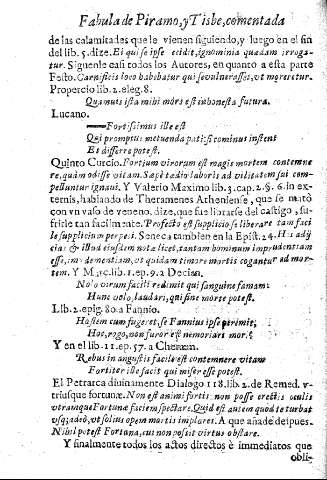 Fabula de Piramo, y Tisbe, comentada
de las calamitades que le vienen siguiendo, y luego en el fin
del lib. 5. dize. Ei qui se ipse cidit, ignominia quadam irroga-
tur. Siguenle casi todos los Autores, en quanto a esta parte
Festo. Carnificis loco habebatur qui se vulnerasset, vt moreretur.
Propercio lib. 2. eleg. 8.
Quamuis ista mihi mors est inhonesta futura.
Lucano.
Fortissimus ille est
Qui promptus metuenda pati: si cominus instent
Et differre potest.
Quinto Curcio. Fortium virorum est magis mortem contemne
re, quàm odisse vitam. Sæpè tædio laboris ad vilitatem sui com-
pelluntur ignaui. Y Valerio Maximo lib. 3. cap. 2. §. 6. in ex-
ternis, hablando de Theramenes Atheniense, que se matò
con vn vaso de veneno, dize, que fue librarse del castigo, su-
frirle tan facilmente. Profecto est supplicio se liberare tam faci
le supplicium perpeti. Seneca tambien en la Epist. 24.
cia: & illud eiusdem nota licet, tantam hominum imprudentiam
esse, imò dementiam, vt quidam timore mortis cogantur ad mor-
tem. Y Marc. lib. 1. ep. 9. a Decian.
Nolo virum facili redimit qui sanguine famam:
Hunc volo, laudari, qui sine morte potest.
Lib. 2. epig. 80. a Fannio.
Hostem cum fugeret, se Fannius ipse perimit;
Hoc, rogo, non furor est ne moriare mori?
Y en el lib. 11. ep. 57. a Cherem.
Rebus in angustis facile est contemnere vitam
Fortiter ille facit qui miser esse potest.
El Petrarca diuinamente Dialogo 118. lib. 2. de Remed. v-
triusque fortunæ. Non est animi fortis: non posse erectis oculis
vtramque Fortunæ faciem spectare. Quid est autem quod te turbat
vsq; adeò, vt solius opem mortis implores. A que añade despues.
Nihil potest Fortuna, cui non possit virtus obstare.
Y finalmente todos los actos directos è immediatos que
obli-